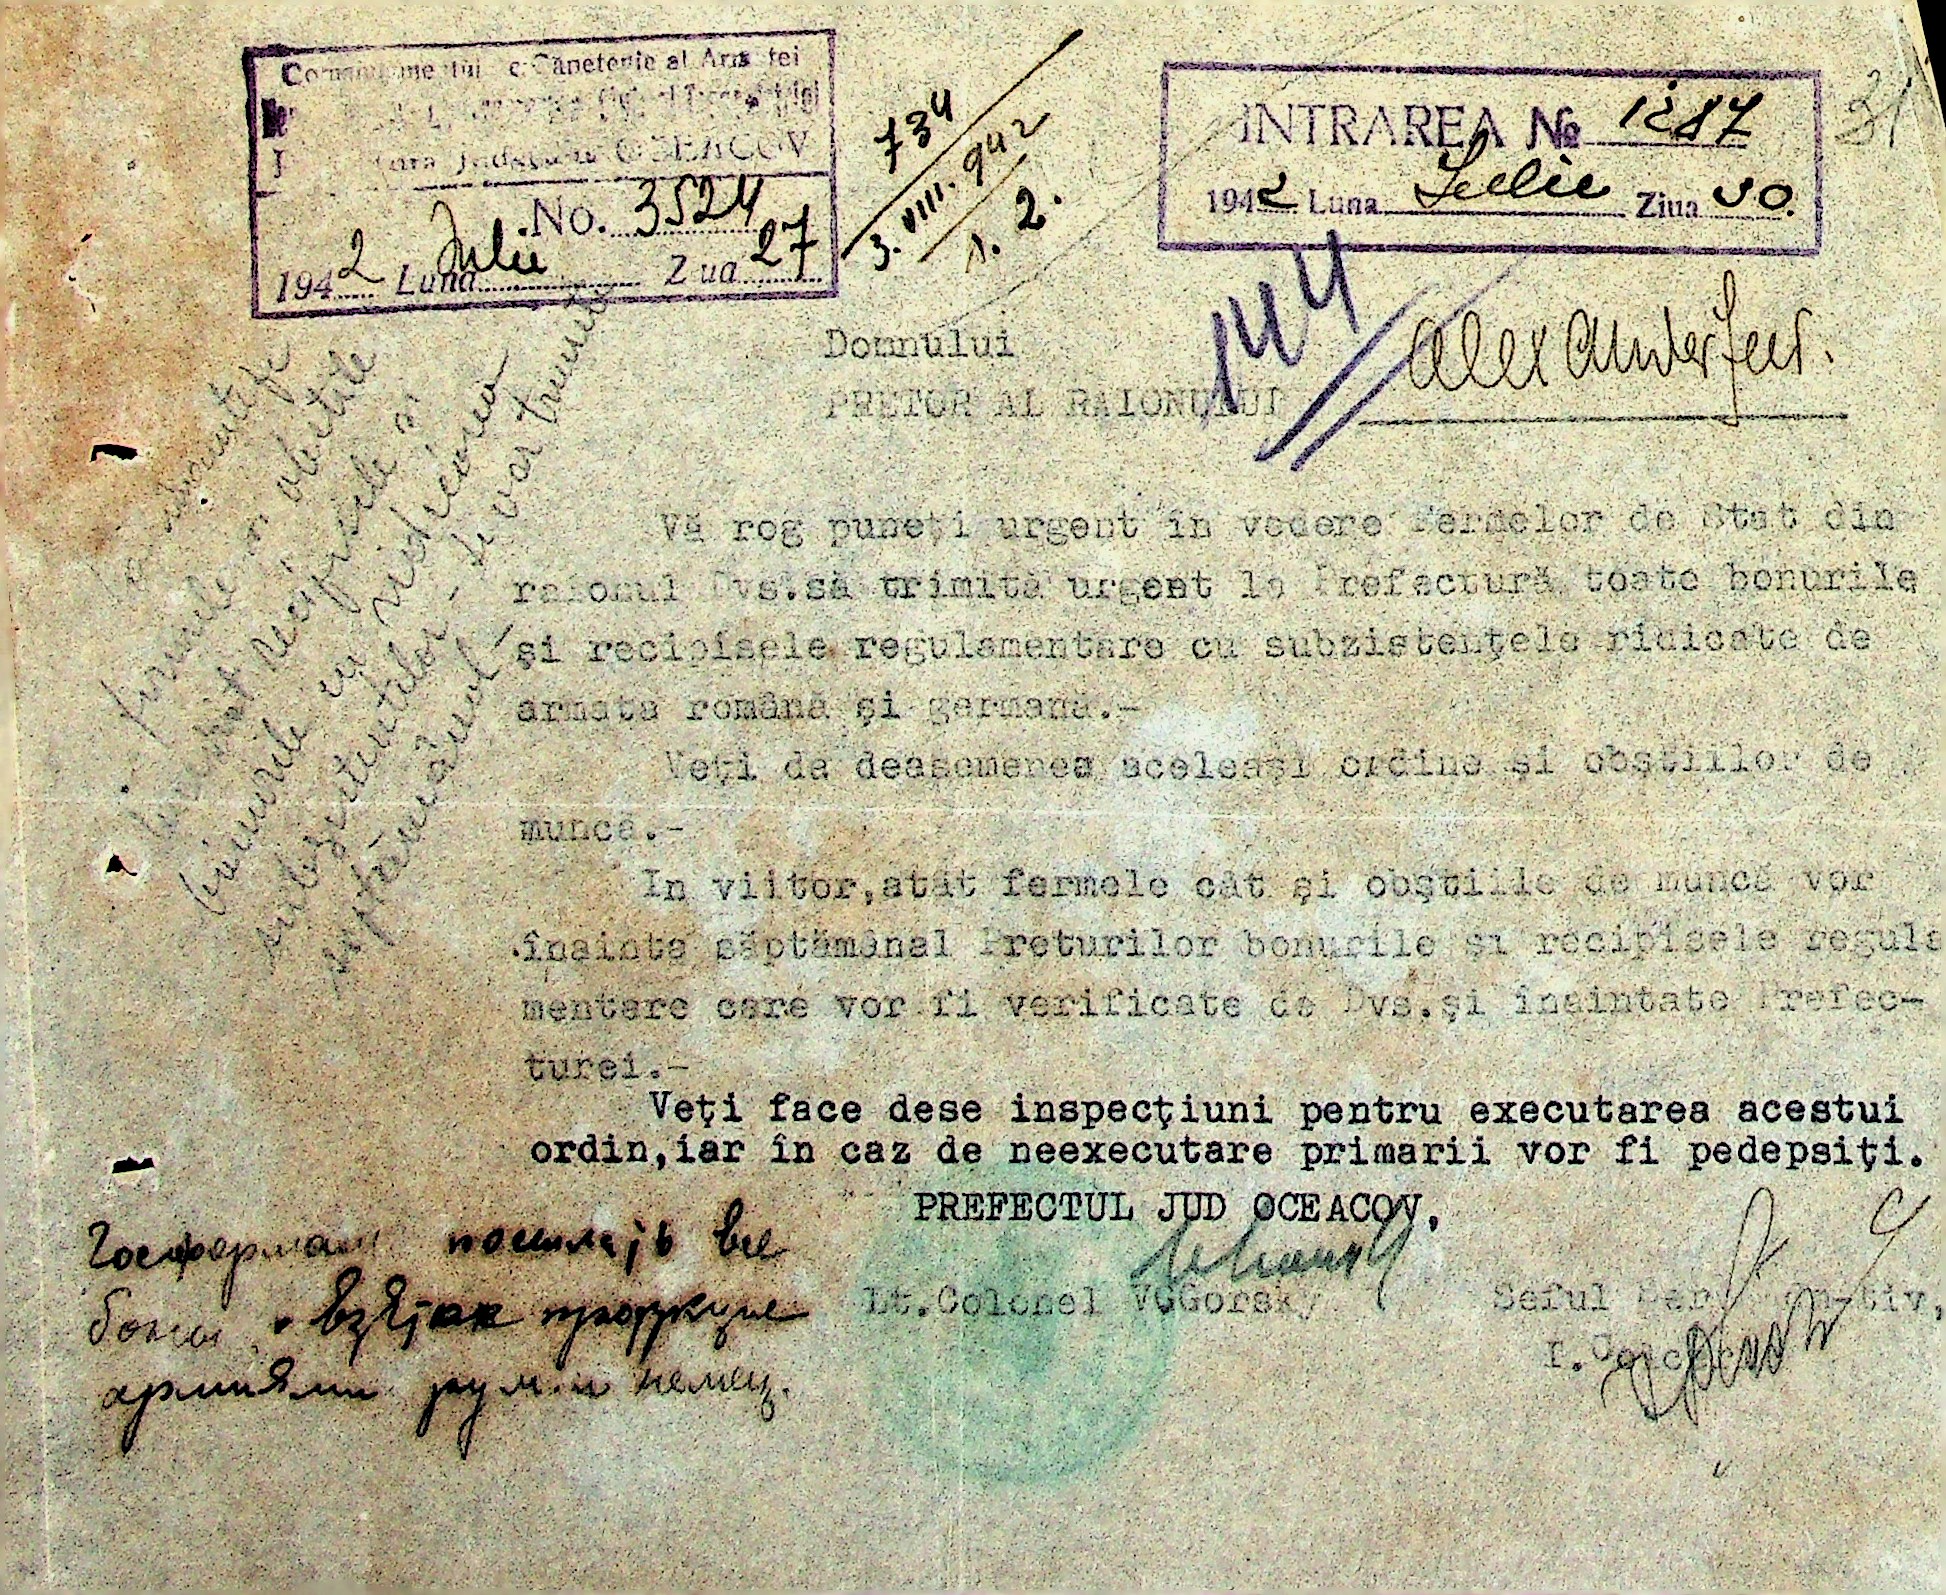 al Armatei
OCEACOV
No. 3524
1942 Luna Iulie Ziua 27
734
3. VIII. 942
1. 2.
INTRAREA № 1287
1942 Luna Iulie Ziua 30.
31
Domnului
PRETOR AL RAIONULUI Alexanderfeld.
Vă rog puneți urgent în vedere Fermelor de Stat din
raionul Dvs.să trimită urgent la Prefectură toate bonurile
și recipisele regulamentare cu subzistențele ridicate de
armata română și germană.-
Veți da deasemenea aceleași ordine și obștiilor de
muncă.-
In viitor,atât fermele cât și obștiile de muncă vor
înainta săptămânal Preturilor bonurile și recipisele regula
mentare care vor fi verificate de Dvs.și înaintate Prefec-
turei.-
Veți face dese inspecțiuni pentru executarea acestui
ordin,iar în caz de neexecutare primarii vor fi pedepsiți.
PREFECTUL JUD OCEACOV,
Lt.Colonel V.Gorsky
Seful
I.
fermele obștile
recipisele și
bonurile cu ridicarea
subzistentelor, se vor trimite
săptămânal.
Госфермам посилать все
бони взятая продукция
армиями рум. и немец.